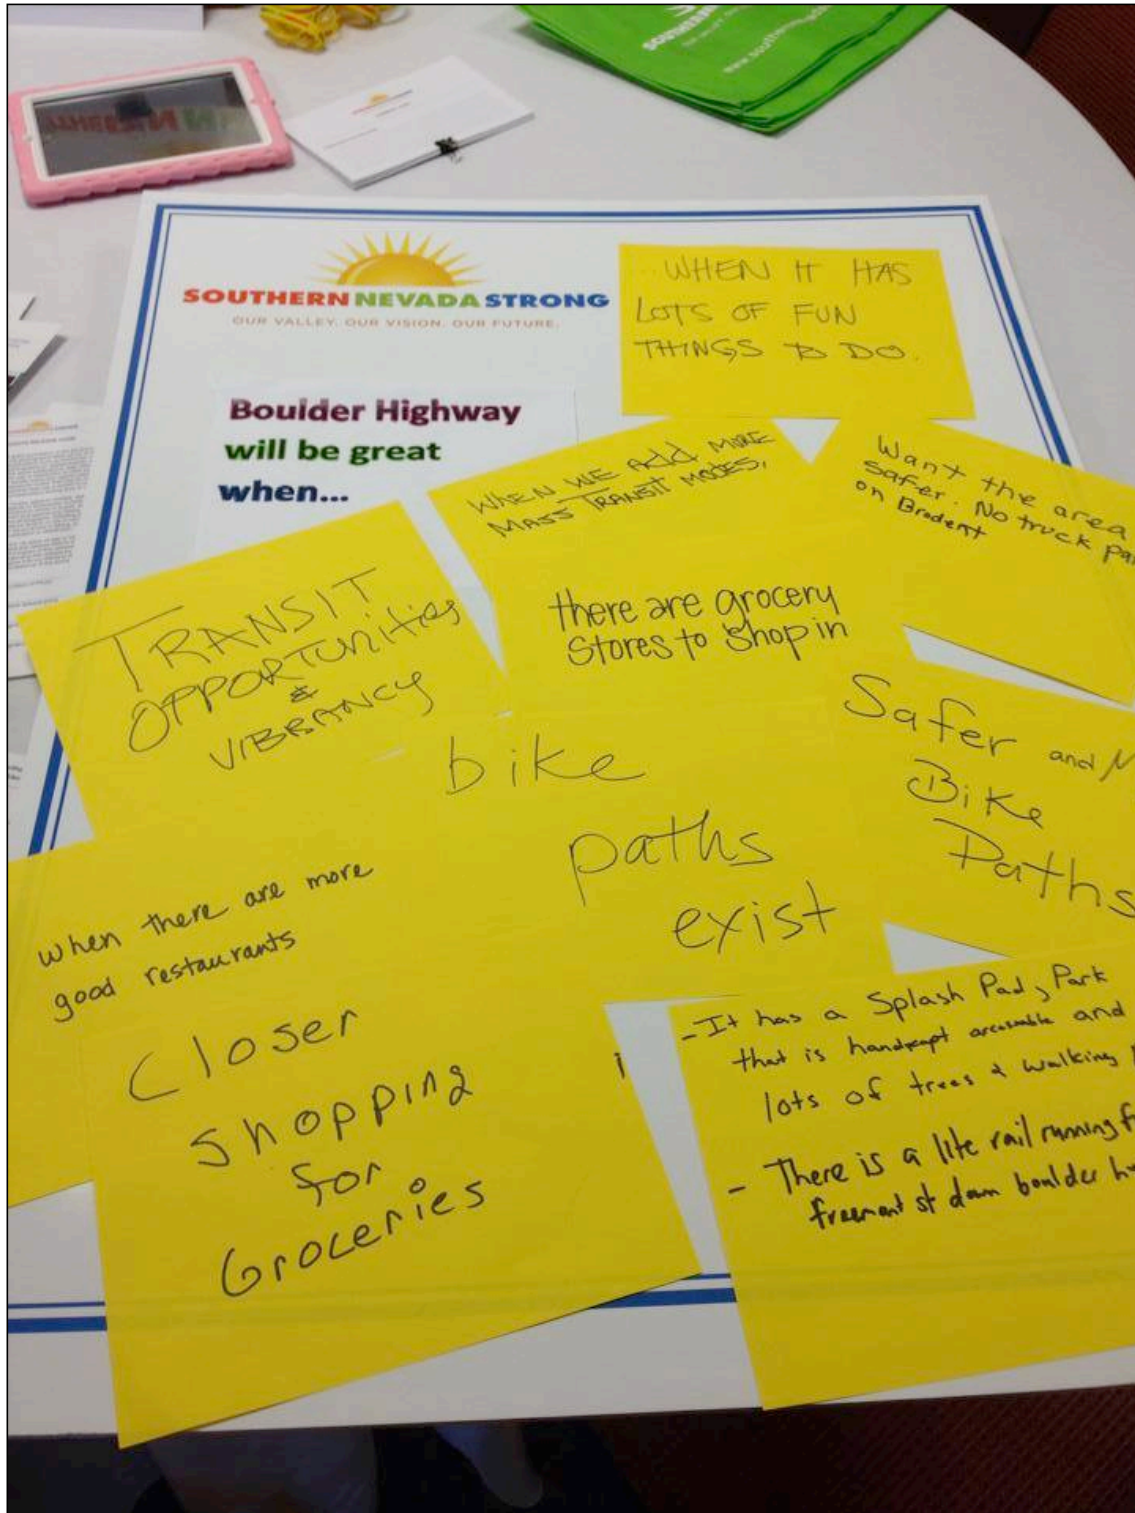 SOUTHERN NEVADA STRONG
OUR VALLEY. OUR VISION. OUR FUTURE.
Boulder Highway
will be great
when...
...WHEN IT HAS
LOTS OF FUN
THINGS TO DO.
WHEN WE ADD MORE
MASS TRANSIT MODES,
there are grocery
Stores to shop in
Want the area
Safer. No truck
on Brodent
TRANSIT
OPPORTUNITIES
&
VIBRANCY
bike
paths
exist
Safer and
Bike
Paths
when there are more
good restaurants
Closer
Shopping
for
Groceries
- It has a Splash Pad, Park
that is handycapt accesable and
lots of trees & walking
- There is a lite rail running
freemont st down boulder